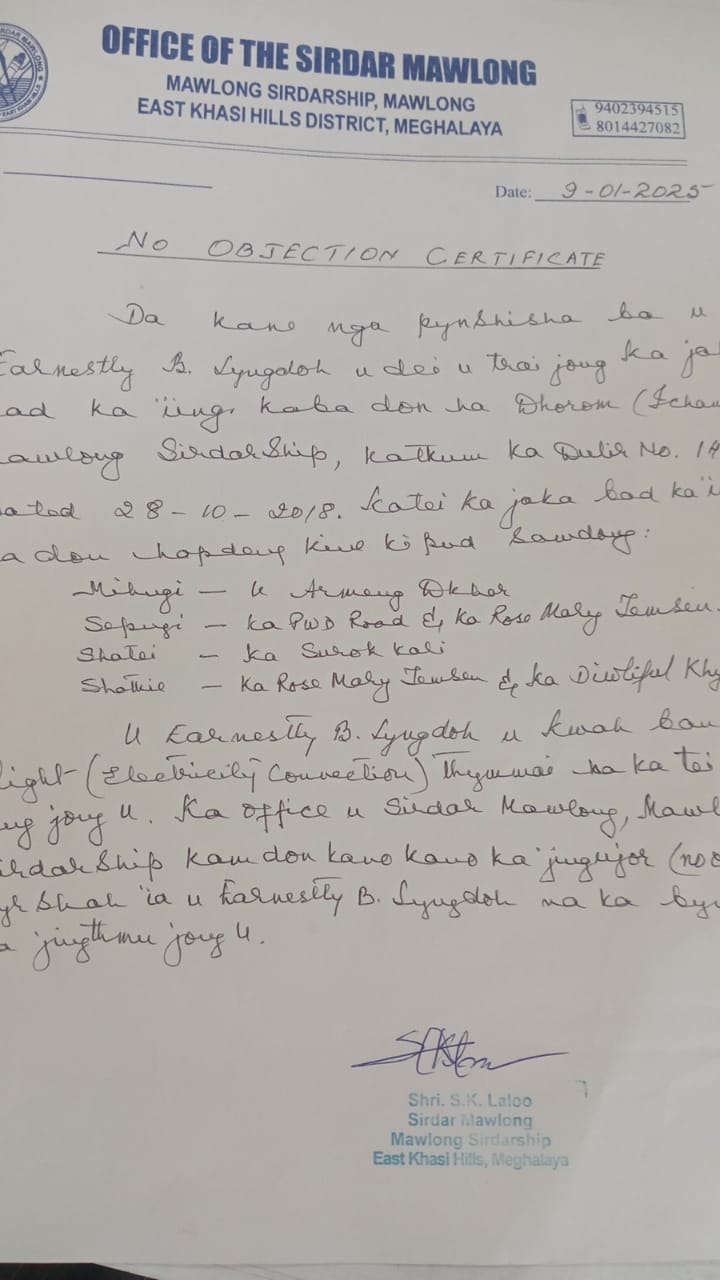 OFFICE OF THE SIRDAR MAWLONG
MAWLONG SIRDARSHIP, MAWLONG
EAST KHASI HILLS DISTRICT, MEGHALAYA
9402394515
8014427082
Date: 9-01-2025
NO OBJECTION CERTIFICATE
Da kane nga pynshisha ba u
Earnestly B. Lyngdoh u dei u trai jong ka
ad ka ïing, kaba don ha Dhorom (Icham
awlong Sirdarship, katkum ka Dulir No. 14
ated 28-10-2018. Katei ka jaka bad ka
a don hapdeng kine ki pud sawdong:
Mihngi – U Armeng Dkhar
Sepngi – Ka PWD Road & Ka Rose Mary Temsen.
Shatei – Ka Surok Kali
Shathie – Ka Rose Mary Temsen & Ka Diwliful Khy
U Earnestly B. Lyngdoh u kwah ban
light (Electricity Connection) thymmai ha ka tei
ng jong u. Ka office u Sirdar Mawlong, Mawl
irdarship kam don kano kano ka jingujor (no o
yrshah ïa u Earnestly B. Lyngdoh na ka
a jingthmu jong u.
Shri. S.K. Laloo
Sirdar Mawlong
Mawlong Sirdarship
East Khasi Hills, Meghalaya